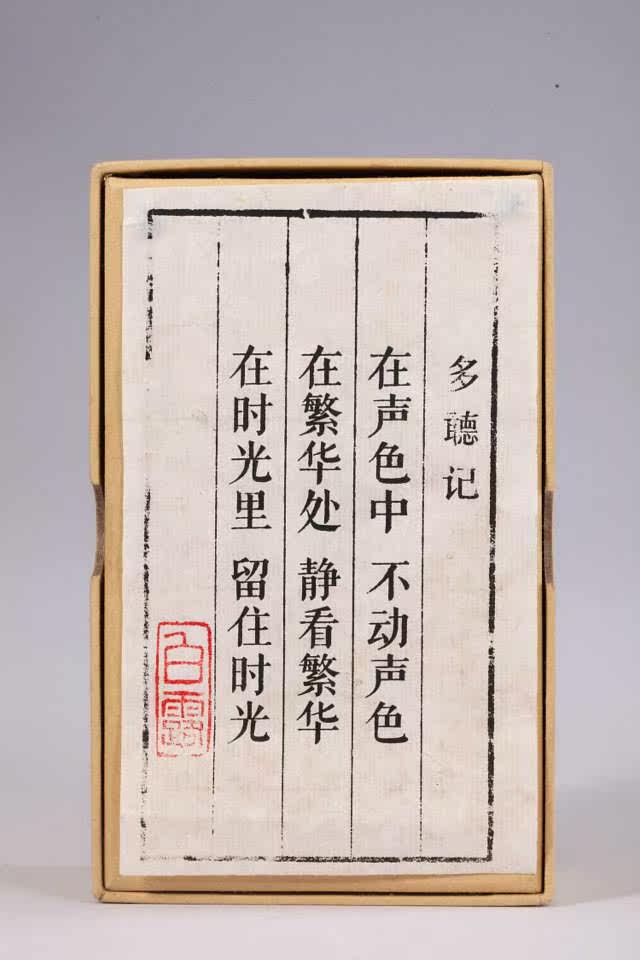 多聴记
在声色中 不动声色
在繁华处 静看繁华
在时光里 留住时光
白露